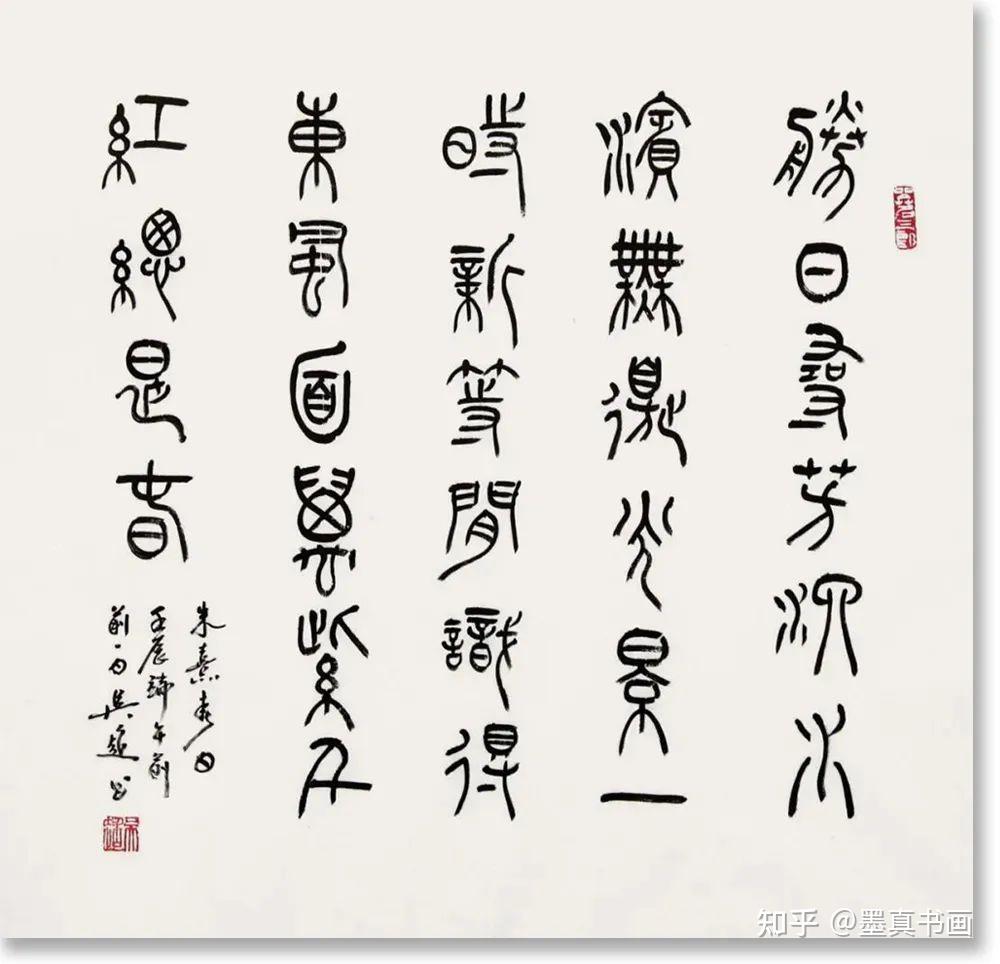 勝日尋芳泗水
濱無邊光景一
時新等閒識得
東風面萬紫千
紅總是春
朱熹春日
壬辰端午前
前一日吳超书
吳超
知乎 @墨真书画